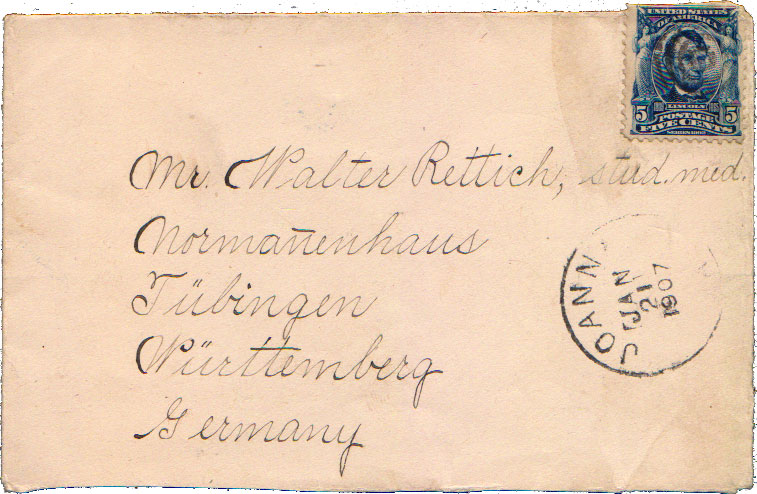 UNITED STATES
OF AMERICA
LINCOLN
5 5
POSTAGE
FIVE CENTS
SERIES 1902
Mr. Walter Rettich, stud. med.
Norman̄enhaus
Tübingen
Württemberg
Germany
JOANN
JAN
21
1907